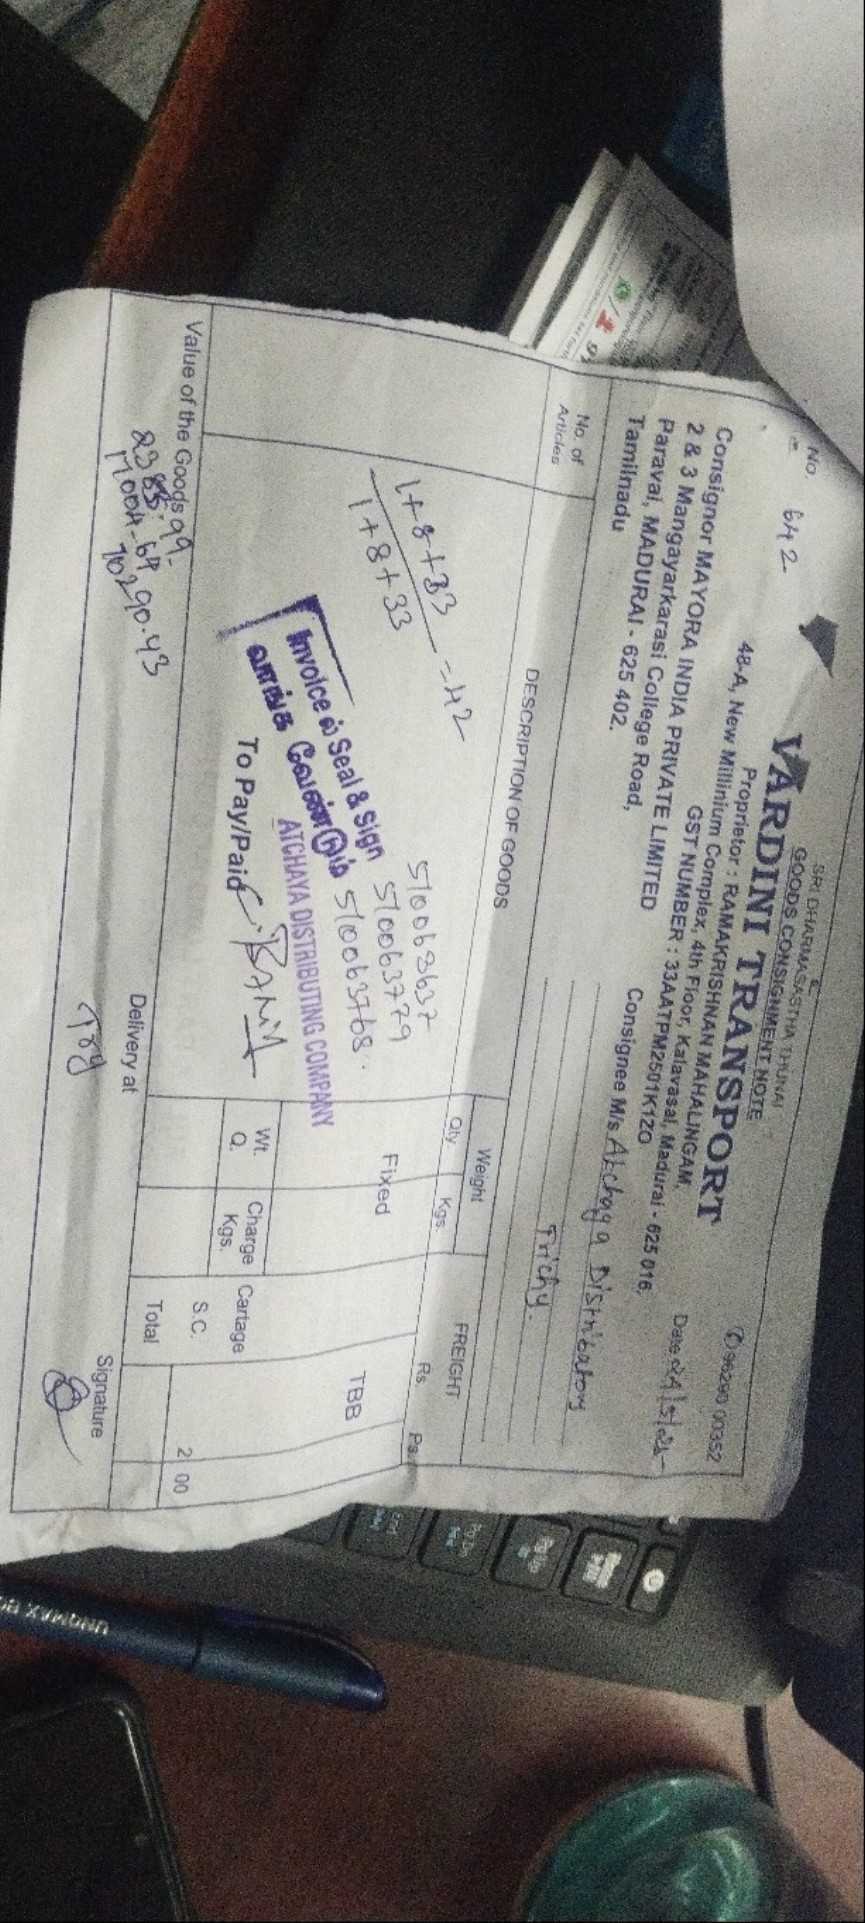 SRI DHARMASASTHA THUNAI
GOODS CONSIGNMENT NOTE
No. 642
VARDINI TRANSPORT
✆ 96290 00352
Proprietor : RAMAKRISHNAN MAHALINGAM,
48-A, New Millinium Complex, 4th Floor, Kalavasal, Madurai - 625 016.
GST NUMBER : 33AATPM2501K1ZO
Date
Consignor MAYORA INDIA PRIVATE LIMITED
2 & 3 Mangayarkarasi College Road,
Paravai, MADURAI - 625 402.
Tamilnadu
Consignee M/s. Atchaya Distributory
Trichy.
No. of Articles
DESCRIPTION OF GOODS
Weight
Qty. Kgs.
FREIGHT
Rs. Ps.
1+8+33
1+8+33
=42
510063637
510063779
510063768
Fixed
TBB
Invoice ல் Seal & Sign
வாங்க வேண்டும்
ATCHAYA DISTRIBUTING COMPANY
To Pay/Paid
Wt. Q.
Charge Kgs.
Cartage
S.C. 2 00
Total
Value of the Goods
70290.43
Delivery at
Try
Signature
UNOMAX
Pg Up
Pg Dn